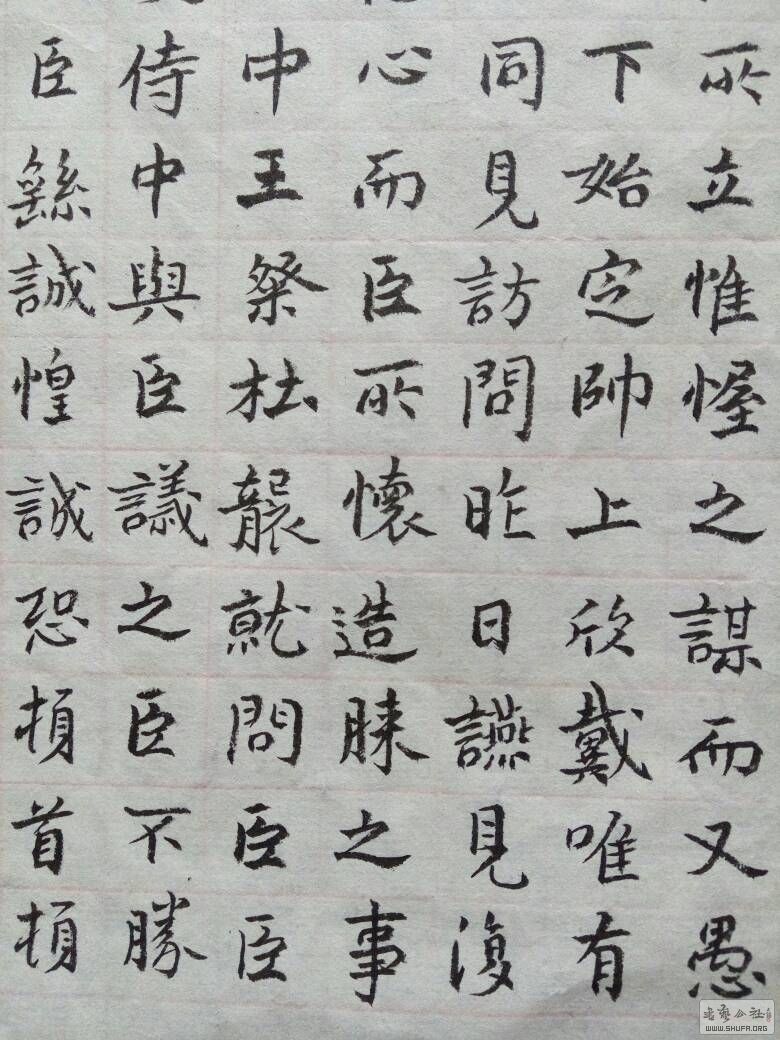 所立惟幄之謀而又愚
下始定帥上欣戴唯有
同見訪問昨日讌見復
心而臣所懷造膝之事
中王粲杜襲就問臣臣
侍中與臣議之臣不勝
臣繇誠惶誠恐頓首頓
书艺公社
WWW.SHUFA.ORG